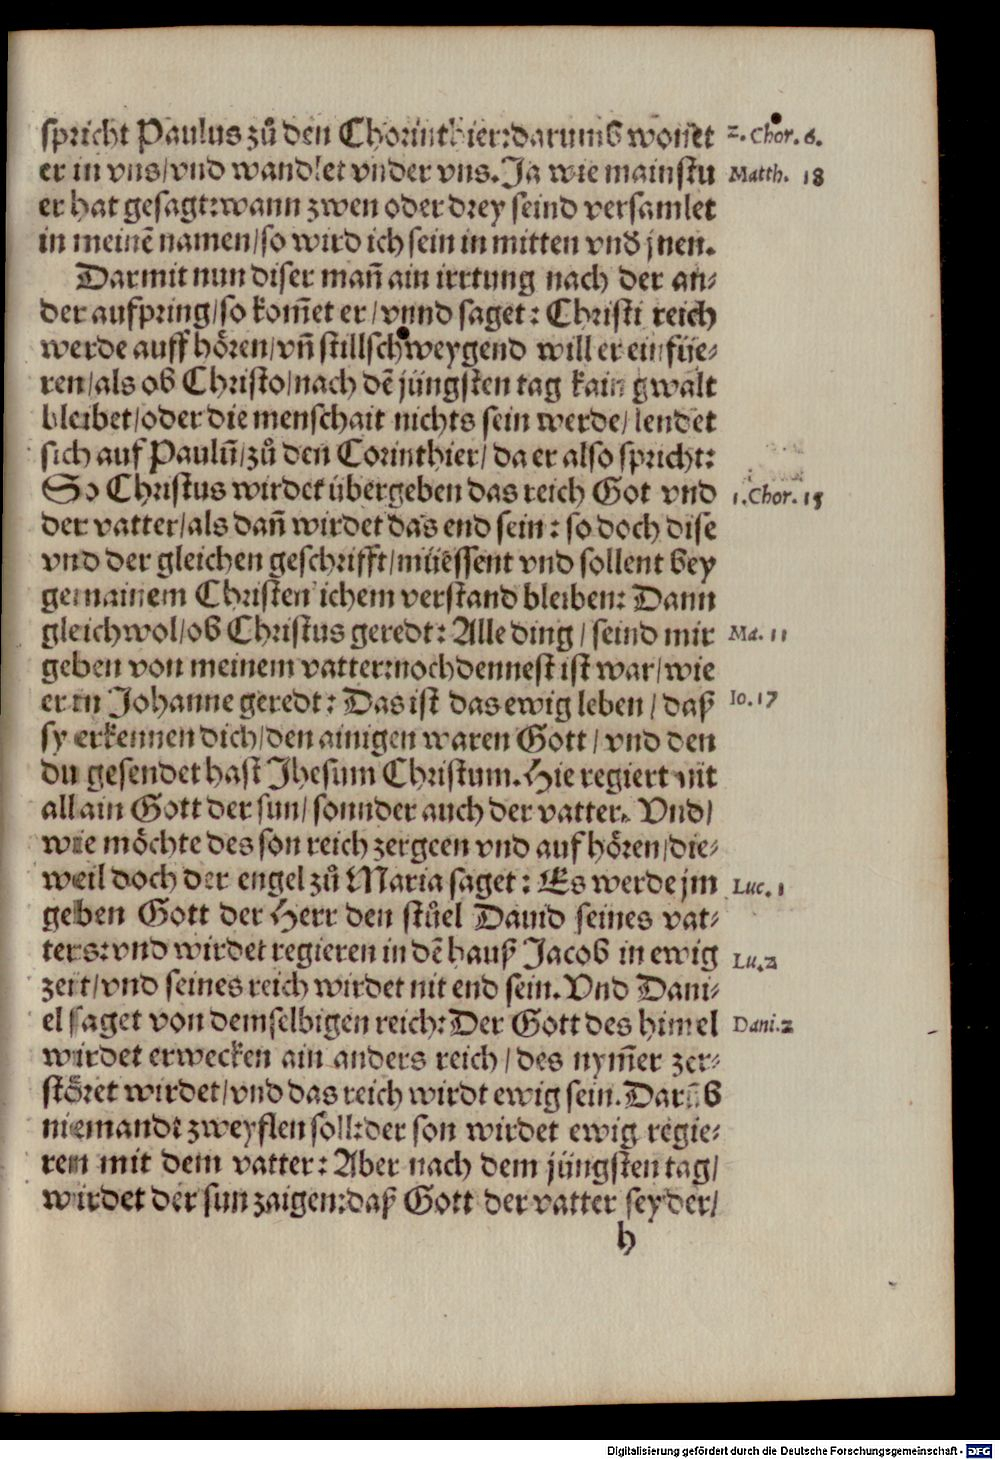 spricht Paulus zů den Chorinthier:darumb wonet
2. Chor. 6.
er in vns/vnd wandlet vnder vns.Ja wie mainstu
Matth. 18
er hat gesagt:wann zwen oder drey seind versamlet
in meinē namen/so wird ich sein in mitten vnd jnen.
Darmit nun diser man̄ ain irrtung nach der an⸗
der aufpring/so kom̄et er/vnnd saget: Christi reich
werde auff hören/vn̄ stillschweygend will er einfüe⸗
ren/als ob Christo/nach dē jüngsten tag kain gwalt
bleibet/oder die menschait nichts sein werde/lendet
sich auf Paulū/zů den Corinthier/da er also spricht:
So Christus wirdet übergeben das reich Got vnd
1.Chor.15
der vatter/als dan̄ wirdet das end sein: so doch dise
vnd der gleichen geschrifft/müessent vnd sollent bey
gemainem Christenlichem verstand bleiben: Dann
gleichwol/ob Christus geredt: Alle ding/seind mir
Ma. 11
geben von meinem vatter:nochdennest ist war/wie
er in Johanne geredt: Das ist das ewig leben/daß
Io.17
sy erkennen dich/den ainigen waren Gott/vnd den
du gesendet hast Jhesum Christum.Hie regiert nit
allain Gott der sun/sonnder auch der vatter. Vnd/
wie möchte des son reich zergeen vnd auf hören/die⸗
weil doch der engel zů Maria saget: Es werde jm
Luc. 1
geben Gott der Herr den stůel Dauid seines vat⸗
ters:vnd wirdet regieren in dē hauß Jacob in ewig
Lu.2
zeit/vnd seines reich wirdet nit end sein.Vnd Dani⸗
el saget von demselbigen reich: Der Gott des himel
Dani.2
wirdet erwecken ain anders reich/des nym̄er zer⸗
störet wirdet/vnd das reich wirdt ewig sein.Darūb
niemandt zweyflen soll:der son wirdet ewig regie⸗
ren mit dem vatter: Aber nach dem jüngsten tag/
wirdet der sun zaigen:daß Gott der vatter sey der/
h
Digitalisierung gefördert durch die Deutsche Forschungsgemeinschaft - DFG